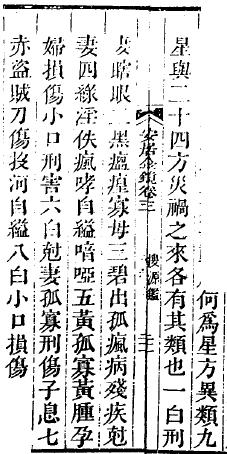 何為星方異類九
星與二十四方災禍之來各有其類也一白刑
安居金鏡卷三　搜源鑑
妻瞎眼二黑瘟㾮寡母三碧出孤瘋病殘疾尅
妻四綠淫佚瘋哮自縊喑啞五黃孤寡黃腫孕
婦損傷小口刑害六白尅妻孤寡刑傷子息七
赤盜賊刀傷投河自縊八白小口損傷